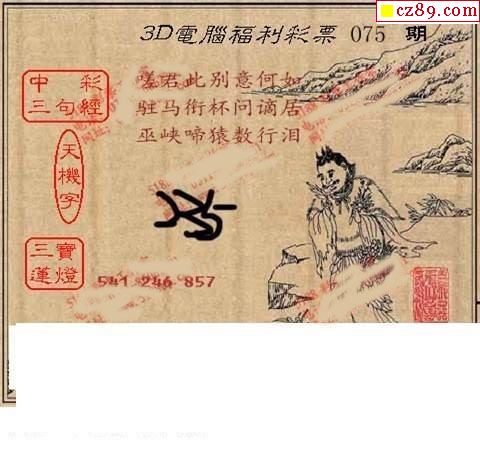 cz89.com
3D電腦福利彩票 075 期
中彩
三句經
嗟君此别意何如
驻马衔杯问谪居
巫峡啼猿数行泪
天機字
三寶
蓮燈
541 246 857